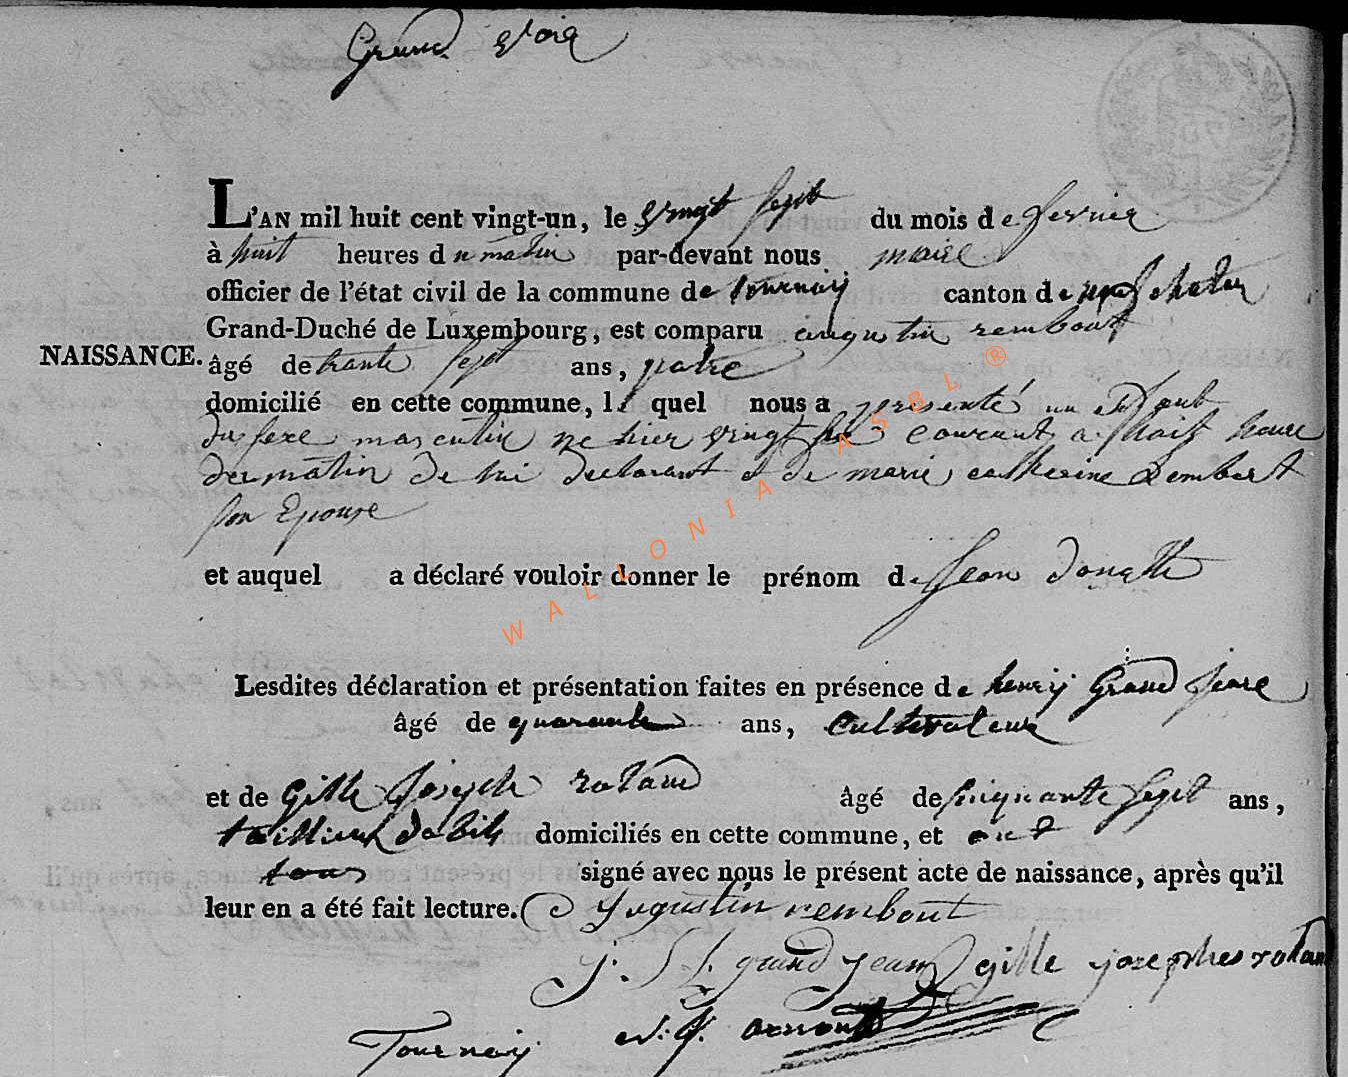 Grand voir
L'AN mil huit cent vingt-un, le vingt sept du mois de fevrier
à huit heures du matin par-devant nous maire
officier de l'état civil de la commune de tournay canton de neufchateau
Grand-Duché de Luxembourg, est comparu augustin rembout
NAISSANCE.
âgé de trante sept ans, patre
domicilié en cette commune, le quel nous a presenté un enfant
du sexe masculin ne hier vingt six courant a huit heure
du matin de lui declarant et de marie catherine Lembert
son Epouse
et auquel a déclaré vouloir donner le prénom de Jean donatte
Lesdites déclaration et présentation faites en présence de henry Grand Jean
âgé de quarante ans, cultivateur
et de Gille Joseph roland âgé de sinquante sept ans,
taillieur dabits domiciliés en cette commune, et ont
tous signé avec nous le présent acte de naissance, après qu'il
leur en a été fait lecture. augustin rembout
grand jean gille josephes roland
Tournay arnould
WALLONIA ASBL ®